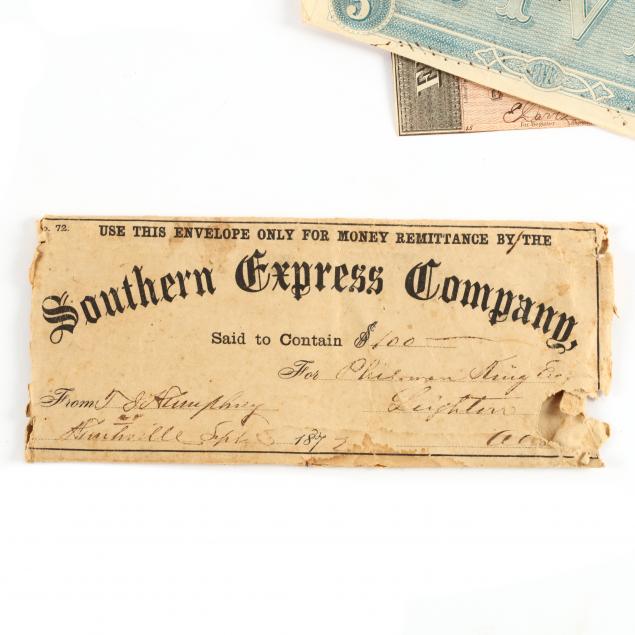 5 FIVE
FIVE
For Register
No. 72.
USE THIS ENVELOPE ONLY FOR MONEY REMITTANCE BY THE
Southern Express Company,
Said to Contain $ 100
For King Esq
From T J Humphrey
Leighton
Huntsville Sept 187